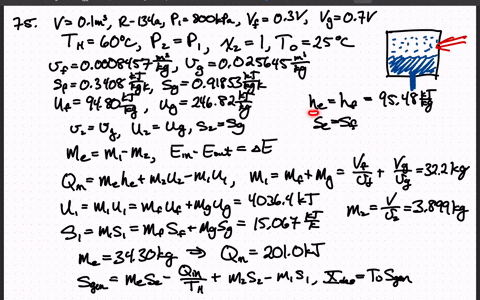 75. V=0.1m³, R-134a, P₁=800kPa, V_f=0.3V, V_g=0.7V
T_H=60°C, P₂=P₁, x₂=1, T₀=25°C
υ_f=0.0008457 m³/kg, υ_g=0.025645 m³/kg
s_f=0.3408 kJ/kgK, s_g=0.91853 kJ/kgK
u_f=94.80 kJ/kg, u_g=246.82 kJ/kg
h_e=h_f=95.48 kJ/kg
s_e=s_f
υ₂=υ_g, u₂=u_g, s₂=s_g
m_e=m₁-m₂, E_in-E_out=ΔE
Q_in=m_eh_e+m₂u₂-m₁u₁, m₁=m_f+m_g=V_f/υ_f+V_g/υ_g=32.2kg
U₁=m₁u₁=m_fu_f+m_gu_g=4036.4kJ
m₂=V/υ₂=3.899kg
S₁=m₁s₁=m_fs_f+m_gs_g=15.067 kJ/K
m_e=34.30kg ⇒ Q_in=201.0kJ
S_gen=m_es_e-Q_in/T_H+m₂s₂-m₁s₁, X_des=T₀S_gen